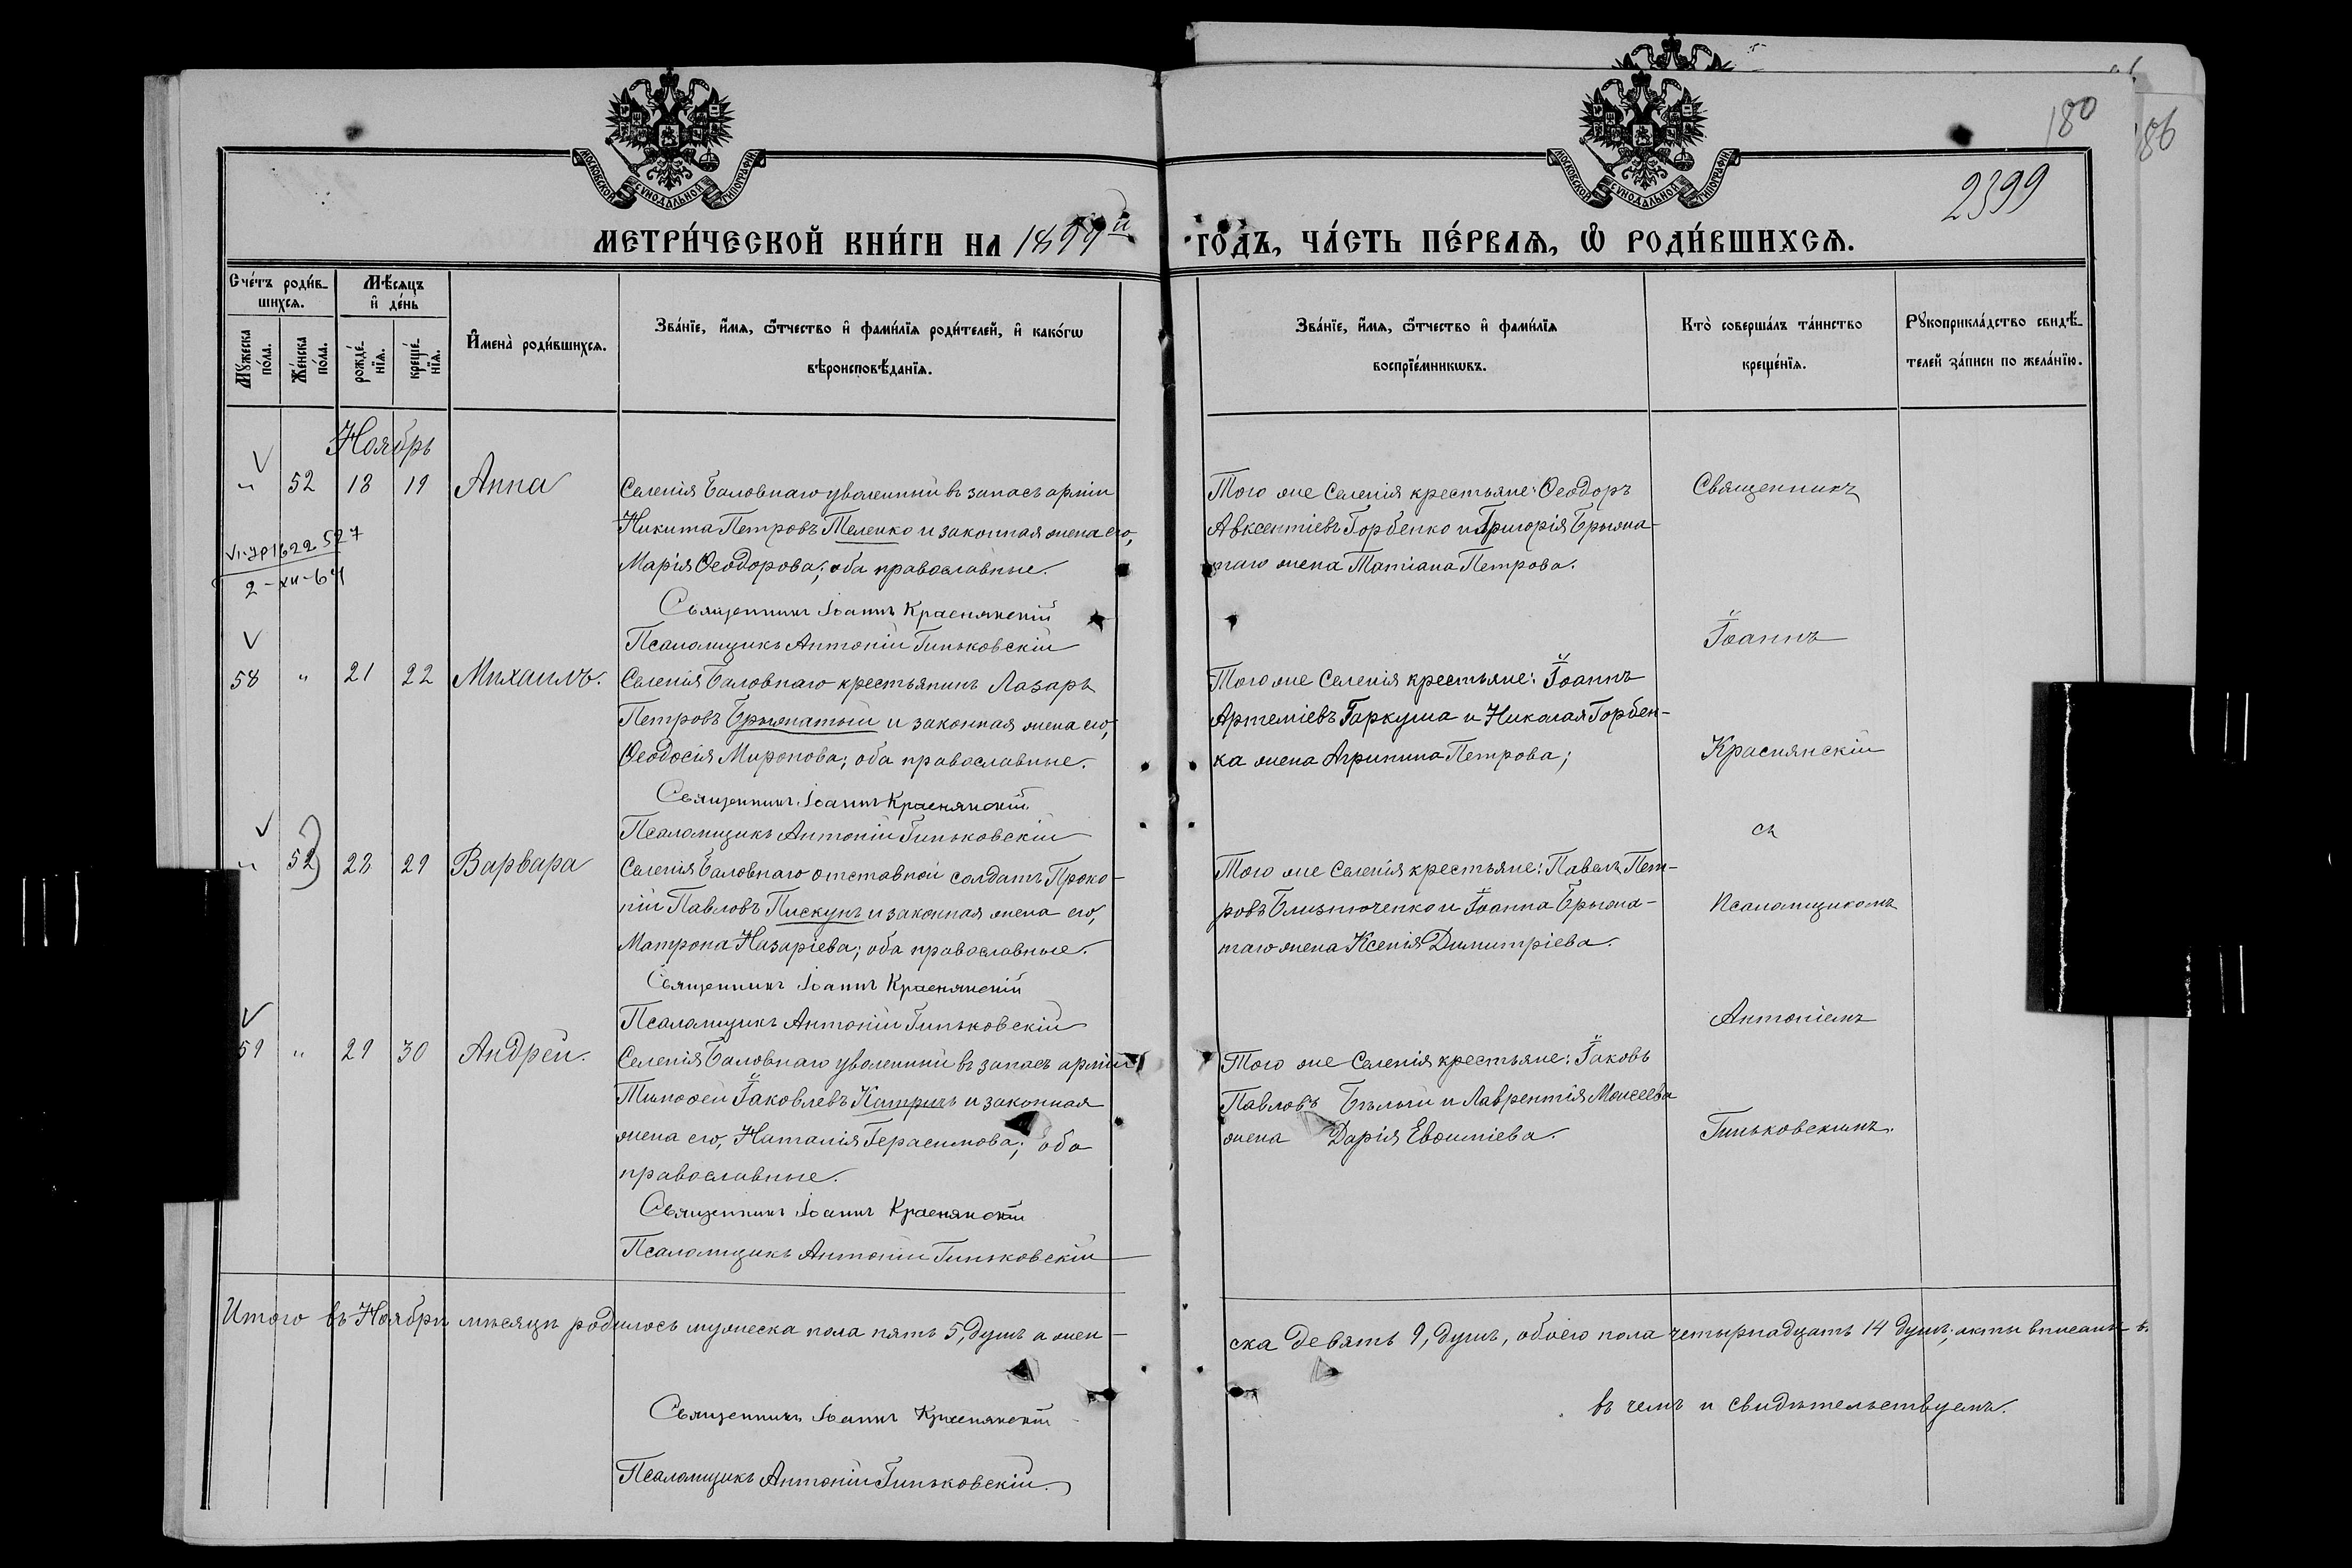 180
186
2399
МОСКОВСКОЙ СѴНОДАЛЬНОЙ ТИПОГРАФІИ
МОСКОВСКОЙ СѴНОДАЛЬНОЙ ТИПОГРАФІИ
МЕТРИ́ЧЕСКОЙ КНИ́ГИ НА 1899й
ГОДЪ, ЧА́СТЬ ПЕ́РВАѦ, Ѡ҆ РОДИ́ВШИХСѦ.
Сче́тъ роди́в-
шихсѧ.
Мѣ́сѧцъ
и҆ де́нь
Мꙋ́жеска
по́ла.
Же́нска
по́ла.
рожде́-
нїѧ.
креще́-
нїѧ.
И҆мена̀ роди́вшихсѧ.
Зва́нїе, и҆́мѧ, ѻ҆́тчество и҆ фами́лїѧ роди́телей, и҆ како́гѡ
вѣроисповѣ́данїѧ.
Зва́нїе, и҆́мѧ, ѻ҆́тчество и҆ фами́лїѧ
воспрїе́мникѡвъ.
Кто̀ соверша́лъ та́инство
креще́нїѧ.
Рꙋкоприкла́дство свидѣ́-
телей за́писи по жела́нїю.
Ноябрь
" 52 18 19 Анна
Селенія Баловнаго уволенный въ запасъ арміи
Никита Петровъ Теленко и законная жена его,
Марія Ѳеодорова; оба православные.
Священникъ Іоаннъ Краснянскій
Псаломщикъ Антоній Гиньковскій
Того же Селенія крестьяне: Ѳеодоръ
Авксентіевъ Горбенко и Григорія Брыжа-
таго жена Татіана Петрова.
2-XII-64
58 " 21 22 Михаилъ.
Селенія Баловнаго крестьянинъ Лазарь
Петровъ Брыжатый и законная жена его,
Ѳеодосія Миронова; оба православные.
Священникъ Іоаннъ Краснянскій
Псаломщикъ Антоній Гиньковскій
Того же Селенія крестьяне: Іоаннъ
Артеміевъ Гаркуша и Николая Горбен-
ка жена Агрипина Петрова;
" 52 28 29 Варвара
Селенія Баловнаго отставной солдатъ Проко-
пій Павловъ Пискунъ и законная жена его,
Матрона Назаріева; оба православные.
Священникъ Іоаннъ Краснянскій
Псаломщикъ Антоній Гиньковскій
Того же Селенія крестьяне: Павелъ Пет-
ровъ Близнюченко и Іоанна Брыжа-
таго жена Ксенія Димитріева.
59 " 29 30 Андрей.
Селенія Баловнаго уволенный въ запасъ арміи
Тимоѳей Іаковлевъ Катричъ и законная
жена его, Наталія Герасимова; оба
православные.
Священникъ Іоаннъ Краснянскій
Псаломщикъ Антоній Гиньковскій
Того же Селенія крестьяне: Іаковъ
Павловъ Бѣлый и Лаврентія Моисеева
жена Дарія Евѳиміева.
Священникъ
Іоаннъ
Краснянскій
съ
псаломщикомъ
Антоніемъ
Гиньковскимъ.
Итого въ Ноябрѣ мѣсяцѣ родилось мужеска пола пять 5, душъ а жен-
ска девять 9, душъ, обоего пола четырнадцать 14 душъ; акты вписаны в.
въ чемъ и свидѣтельствуемъ.
Священникъ Іоаннъ Краснянскій
Псаломщикъ Антоній Гиньковскій.